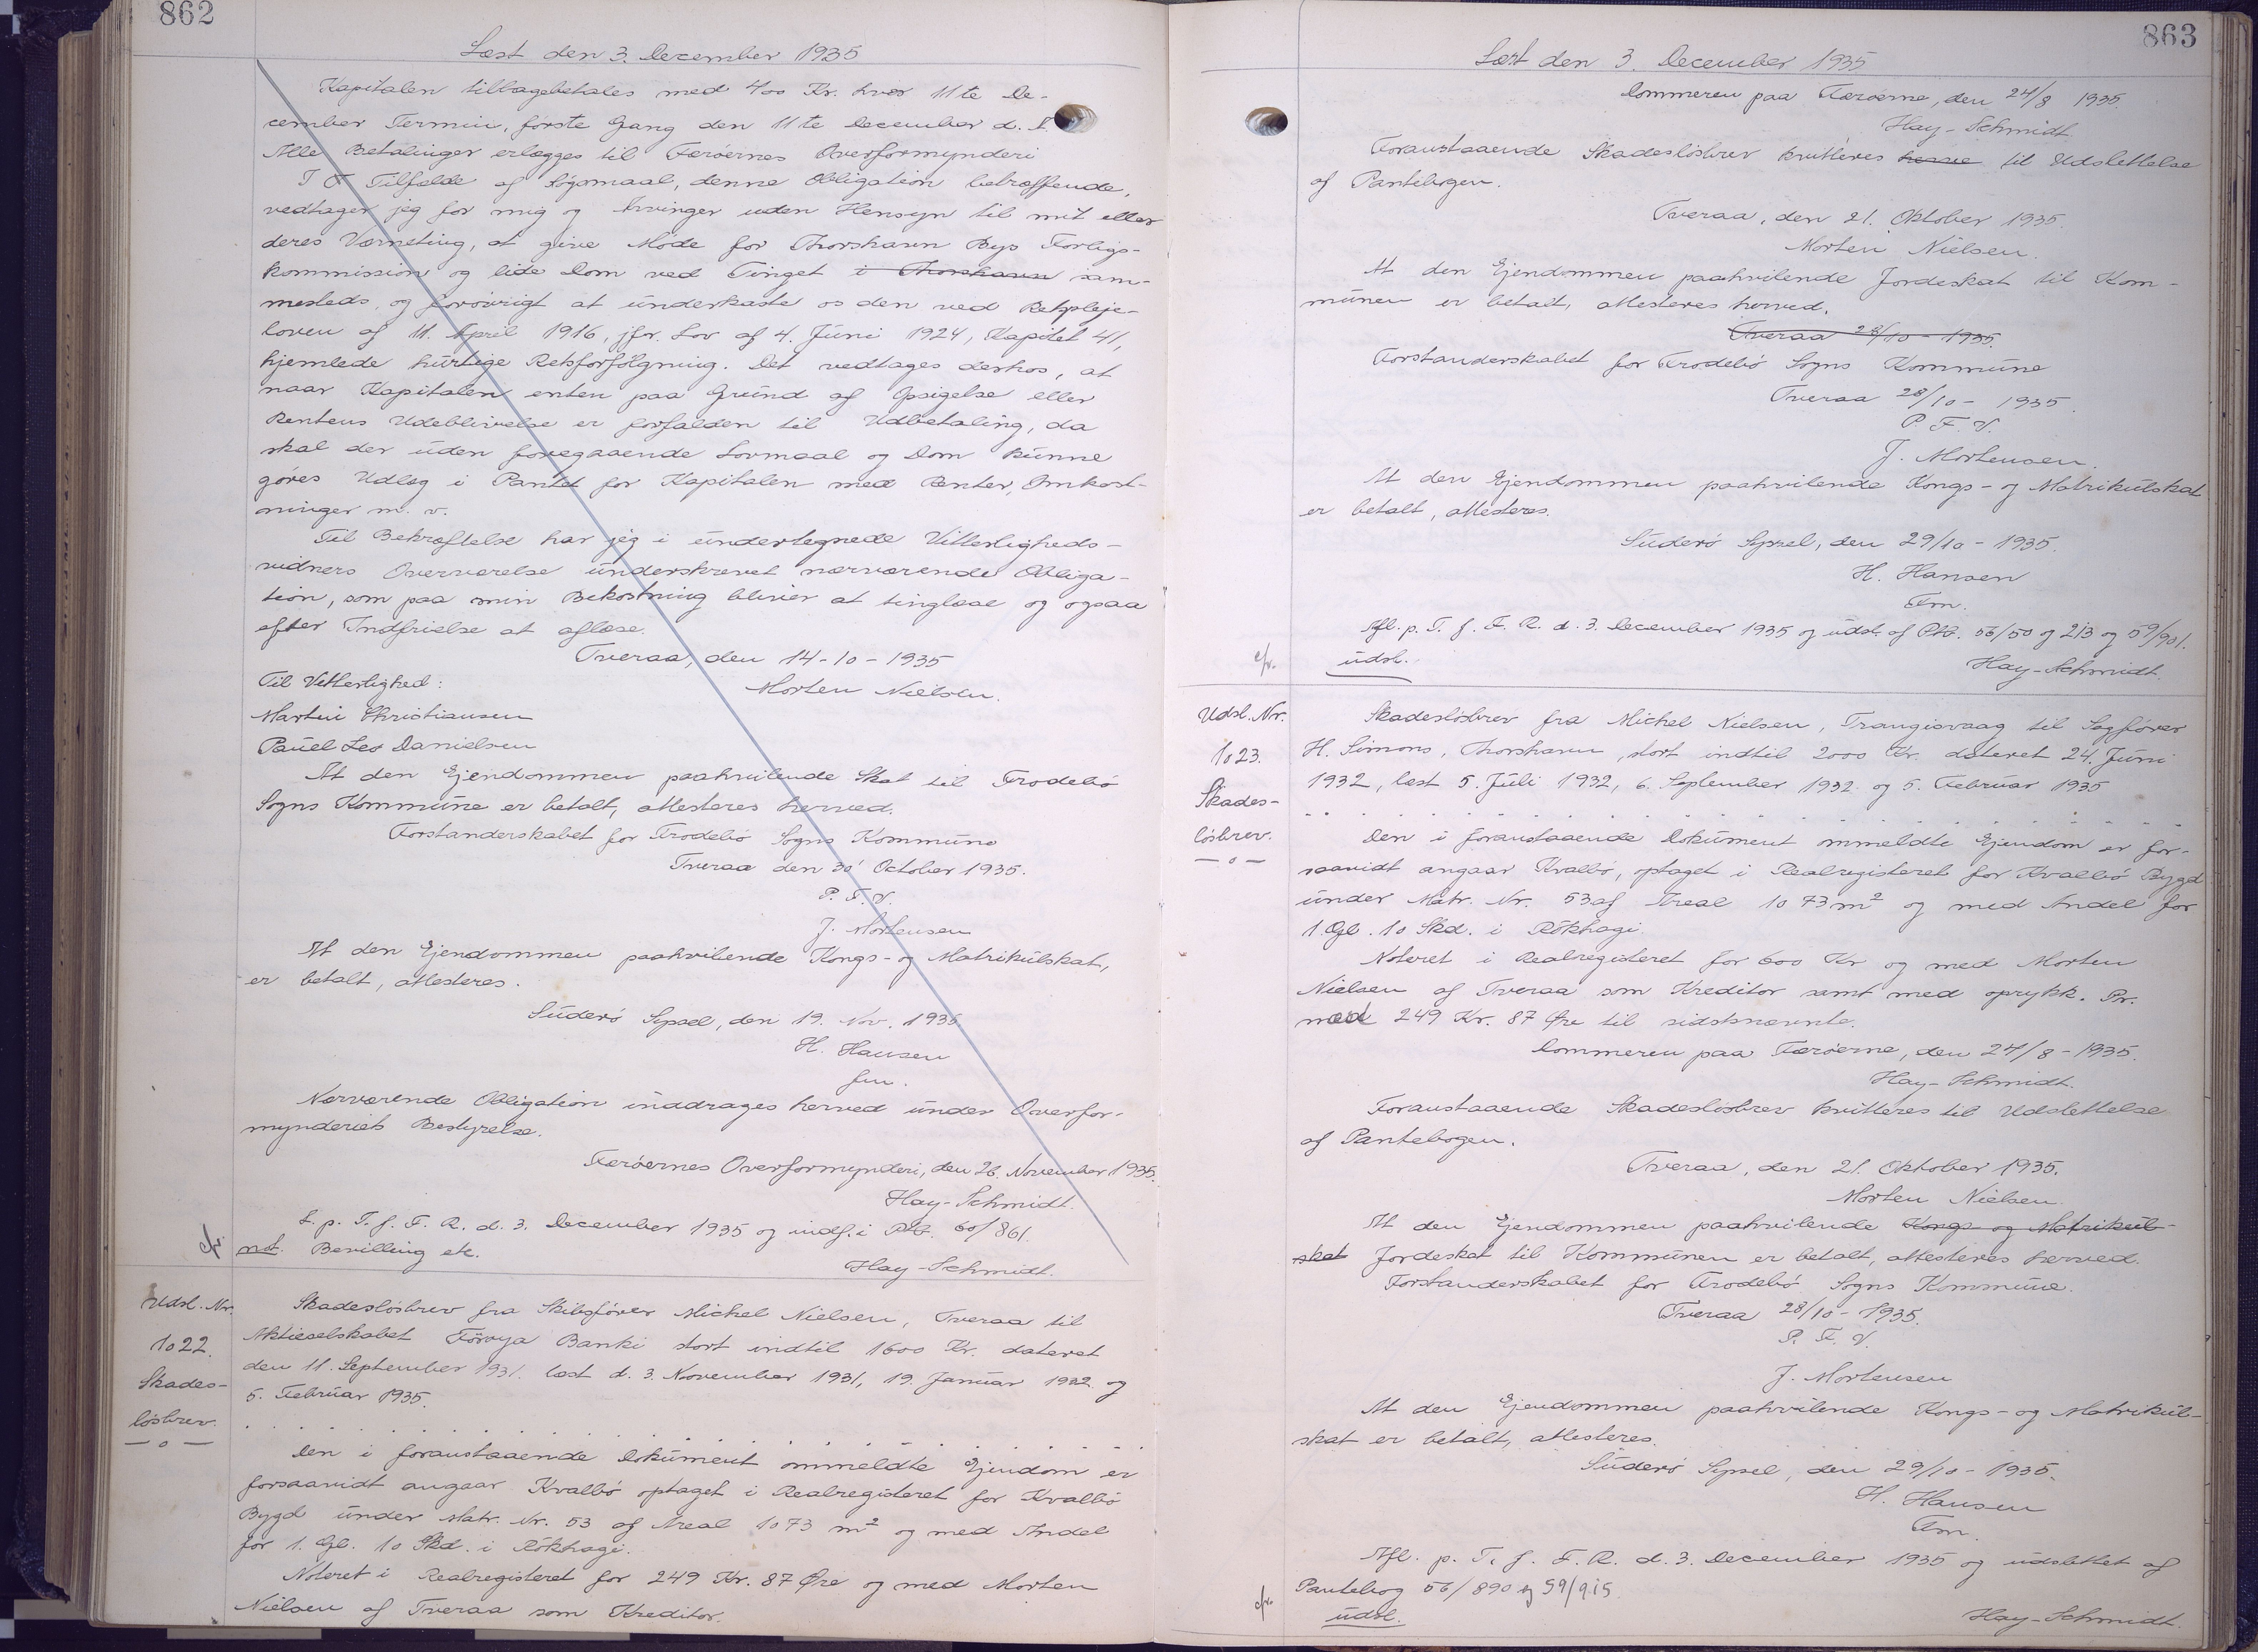 862
Læst den 3. December 1935
Kapitalen tilbagebetales med 400 Kr. hver 11te De-
cember Termin, første Gang den 11te December d. A.
Alle Betalinger erlægges til Færøernes Overformynderi
I Tilfælde af Søgsmaal, denne Obligation betræffende,
vedtager jeg for mig og Arvinger uden Hensyn til mit eller
deres Værneting, at give Møde for Thorshavn Bys Forligs-
kommission og lide Dom ved Tinget i Thorshavn sam-
mesteds, og forøvrigt at underkaste os den ved Retspleje-
loven af 11. April 1916, jfr. Lov af 4. Juni 1924, Kapitel 41,
hjemlede hurtige Retsforfølgning. Det vedtages derhos, at
naar Kapitalen enten paa Grund af Opsigelse eller
Rentens Udeblivelse er forfalden til Udbetaling, da
skal der uden foregaaende Lovmaal og Dom kunne
gøres Udlæg i Pantet for Kapitalen med Renter, Omkost-
ninger m. v.
Til Bekræftelse har jeg i undertegnede Vitterligheds-
vidners Overværelse underskrevet nærværende Obliga-
tion, som paa min Bekostning bliver at tinglæse og ogsaa
efter Indfrielse at aflæse.
Tveraa, den 14-10-1935
Til Vitterlighed:
Morten Nielsen.
Martin Christiansen
Pauel Leo Danielsen
At den Ejendommen paahvilende Skat til Frodebø
Sogns Kommune er betalt, attesteres herved.
Forstanderskabet for Frodebø Sogns Kommune
Tveraa den 30 October 1935.
P. F. V.
J. Mortensen
At den Ejendommen paahvilende Kongs- og Matrikulskat,
er betalt, attesteres.
Suderø Syssel, den 19. Nov. 1935
H. Hansen
fm.
Nærværende Obligation inddrages herved under Overfor-
mynderiets Bestyrelse.
Færøernes Overformynderi, den 26. November 1935.
Hay-Schmidt.
L. p. T. f. F. R. d. 3. December 1935 og indf. i Ptb. 60/861.
not. Bevilling etc.
Hay-Schmidt.
Udsl. Nr.
1022.
Skades-
løsbrev.
Skadesløsbrev fra Skibsfører Michel Nielsen, Tveraa til
Aktieselskabet Føroya Banki stort indtil 1600 Kr. dateret
den 11. September 1931. læst d. 3. November 1931, 19. Januar 1932 og
5. Februar 1935.
Den i foranstaaende Dokument ommeldte Ejendom er
forsaavidt angaar Kvalbø optaget i Realregisteret for Kvalbø
Bygd under Matr. Nr. 53 af Areal 1073 m² og med Andel
for 1. Gl. 10 Skd. i Rókhagi.
Noteret i Realregisteret for 249 Kr. 87 Øre og med Morten
Nielsen af Tveraa som Kreditor.
863
Læst den 3. December 1935
Dommeren paa Færøerne, den 24/8 1935.
Hay-Schmidt
Foranstaaende Skadesløsbrev kvitteres til Udslettelse
af Pantebogen.
Tveraa, den 21. Oktober 1935.
Morten Nielsen.
At den Ejendommen paahvilende Jordeskat til Kom-
munen er betalt, attesteres herved.
Tveraa 28/10 - 1935.
Forstanderskabet for Frodebø Sogns Kommune
Tveraa 28/10 - 1935.
P. F. V.
J. Mortensen.
At den Ejendommen paahvilende Kongs- og Matrikulskat
er betalt, attesteres.
Suderø Syssel, den 29/10 - 1935.
H. Hansen
Fm.
Afl. p. T. f. F. R. d. 3. December 1935 og udsl. af Ptb. 56/50 og 213 og 59/901.
udsl.
Hay-Schmidt.
Udsl. Nr.
1023.
Skades-
løsbrev.
Skadesløsbrev fra Michel Nielsen, Trangisvaag til Sagfører
H. Simons, Thorshavn, stort indtil 2000 Kr. dateret 24. Juni
1932, læst 5. Juli 1932, 6. September 1932 og 5. Februar 1935
Den i foranstaaende Dokument ommeldte Ejendom er for-
saavidt angaar Kvalbø, optaget i Realregisteret for Kvalbø Bygd
under Matr. Nr. 53 af Areal 1073 m² og med Andel for
1. Gl. 10 Skd. i Rókhagi.
Noteret i Realregisteret for 600 Kr og med Morten
Nielsen af Tveraa som Kreditor samt med oprykk. Pr.
med 249 Kr. 87 Øre til sidstnævnte.
Dommeren paa Færøerne, den 24/8 - 1935.
Hay-Schmidt.
Foranstaaende Skadesløsbrev kvitteres til Udslettelse
af Pantebogen.
Tveraa, den 21. Oktober 1935.
Morten Nielsen.
At den Ejendommen paahvilende Kongs og Matrikul-
skat Jordeskat til Kommunen er betalt, attesteres herved.
Forstanderskabet for Frodebø Sogns Kommune.
Tveraa 28/10 - 1935.
P. F. V.
J. Mortensen
At den Ejendommen paahvilende Kongs- og Matrikul-
skat er betalt, attesteres.
Suderø Syssel, den 29/10 - 1935.
H. Hansen
Fm.
Afl. p. T. f. F. R. d. 3. December 1935 og udslettet af
Pantebog 56/890 og 59/915.
udsl.
Hay-Schmidt.